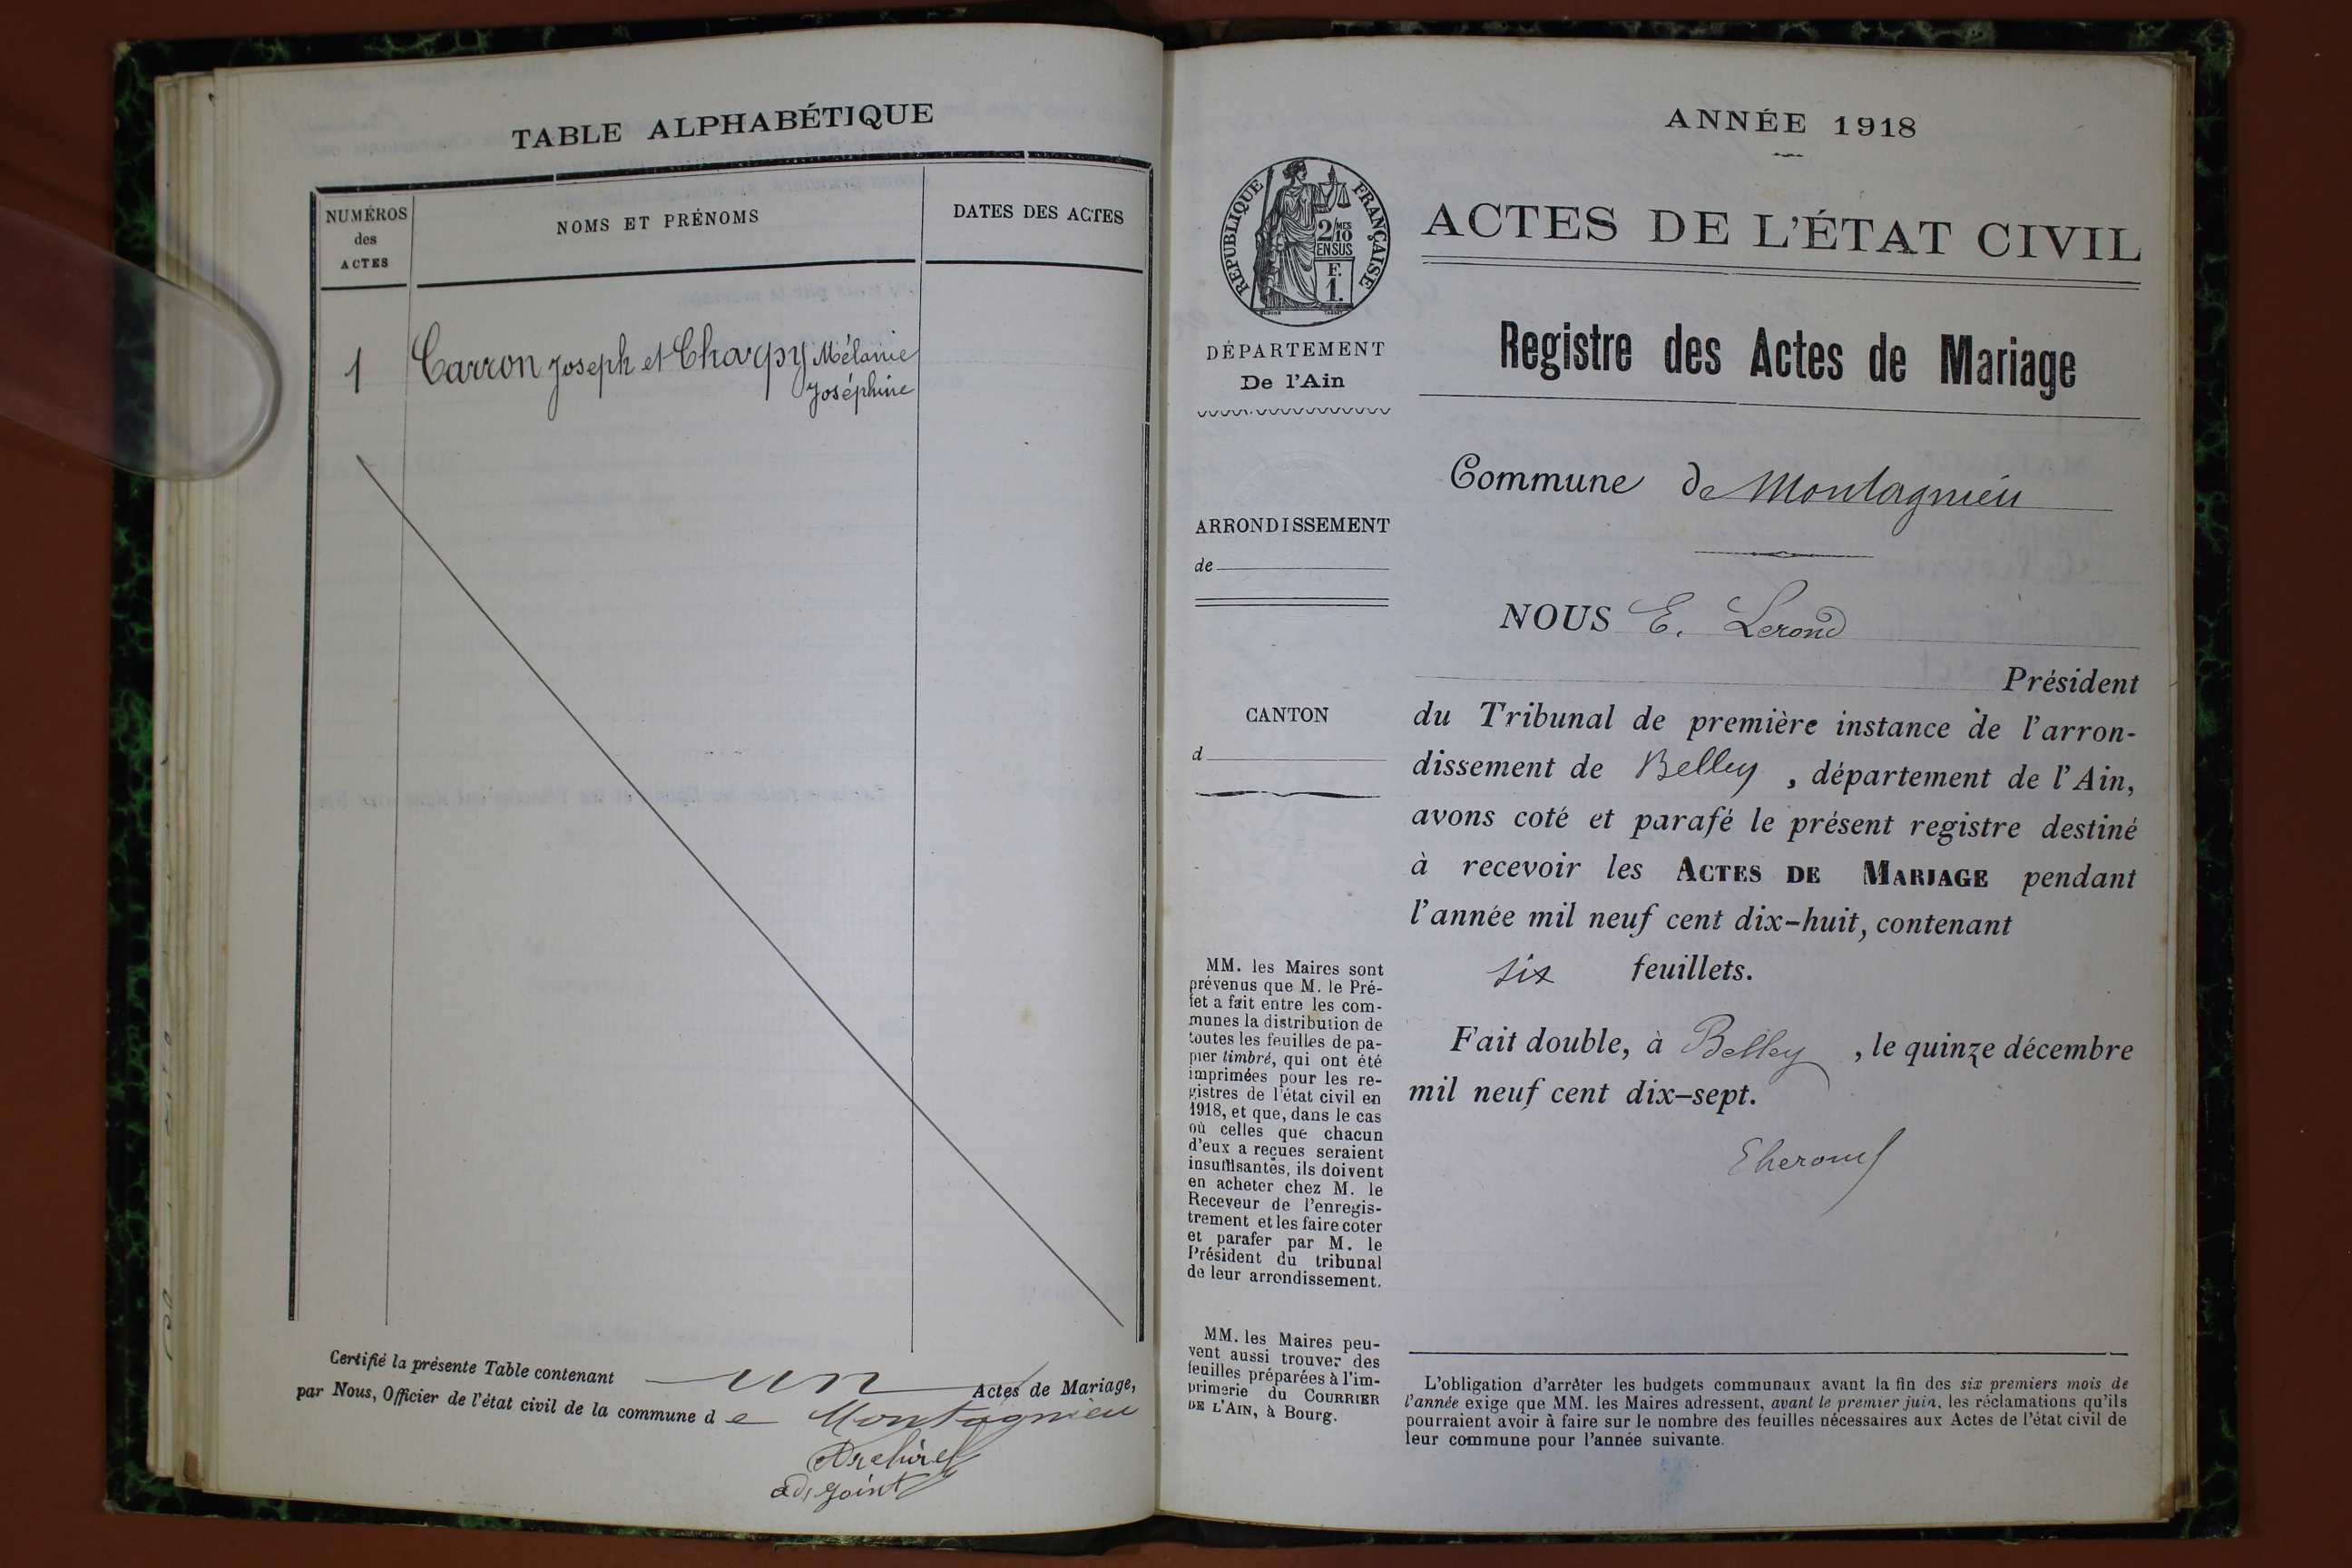 TABLE ALPHABÉTIQUE
NUMÉROS
des
ACTES
NOMS ET PRÉNOMS
DATES DES ACTES
1
Carron Joseph et Charpy Mélanie
Joséphine
Certifié la présente Table contenant un Actes de Mariage,
par Nous, Officier de l'état civil de la commune de Montagnieu
adjoint
ANNÉE 1918
REPUBLIQUE FRANÇAISE
2/10
MES
EN SUS
F.
1.
DÉPARTEMENT
De l'Ain
ARRONDISSEMENT
de
CANTON
d
MM. les Maires sont
prévenus que M. le Pré-
fet a fait entre les com-
munes la distribution de
toutes les feuilles de pa-
pier timbré, qui ont été
imprimées pour les re-
gistres de l'état civil en
1918, et que, dans le cas
où celles que chacun
d'eux a reçues seraient
insuffisantes, ils doivent
en acheter chez M. le
Receveur de l'enregis-
trement et les faire coter
et parafer par M. le
Président du tribunal
de leur arrondissement.
MM. les Maires peu-
vent aussi trouver des
feuilles préparées à l'im-
primerie du COURRIER
DE L'AIN, à Bourg.
ACTES DE L'ÉTAT CIVIL
Registre des Actes de Mariage
Commune de Montagnieu
NOUS E. Lerond
Président
du Tribunal de première instance de l'arron-
dissement de Belley, département de l'Ain,
avons coté et parafé le présent registre destiné
à recevoir les ACTES DE MARIAGE pendant
l'année mil neuf cent dix-huit, contenant
six feuillets.
Fait double, à Belley, le quinze décembre
mil neuf cent dix-sept.
ELerond
L'obligation d'arrêter les budgets communaux avant la fin des six premiers mois de
l'année exige que MM. les Maires adressent, avant le premier juin, les réclamations qu'ils
pourraient avoir à faire sur le nombre des feuilles nécessaires aux Actes de l'état civil de
leur commune pour l'année suivante.